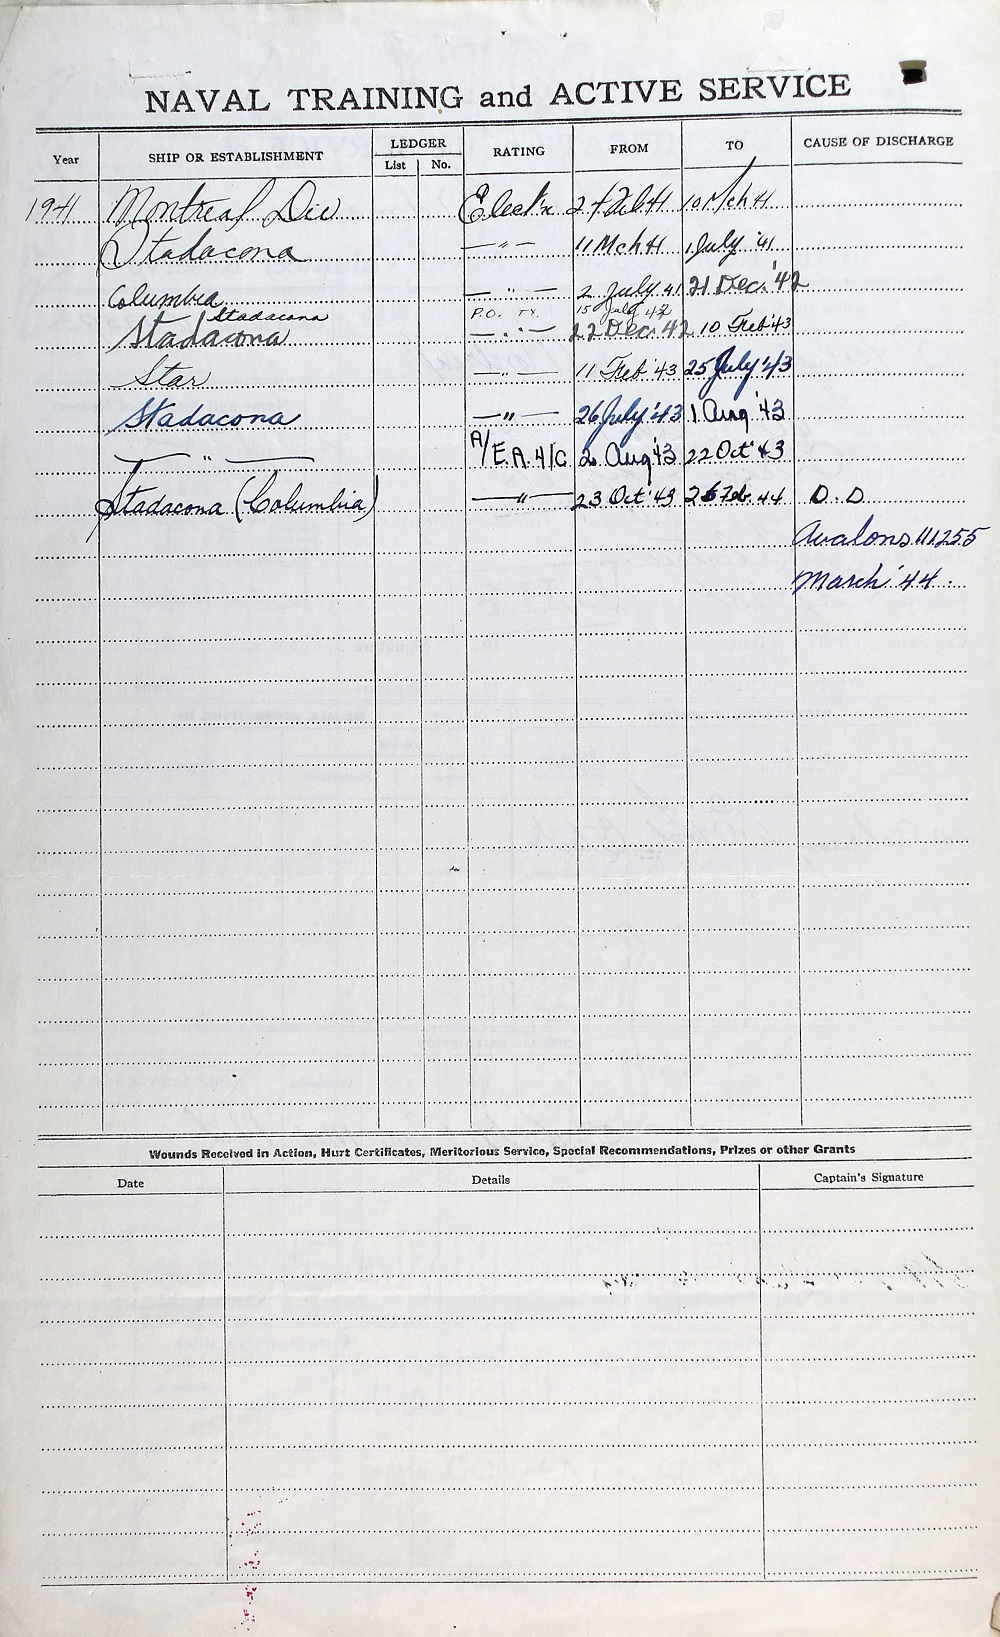 NAVAL TRAINING and ACTIVE SERVICE
Year SHIP OR ESTABLISHMENT LEDGER List No. RATING FROM TO CAUSE OF DISCHARGE
1941 Montreal Div Elect'n 24 Feb 41 10 Mch 41
Stadacona —"— 11 Mch 41 1 July '41
Columbia —"— 2 July 41 21 Dec. '42
Stadacona P.O. TY. 15 July 42
Stadacona —"— 22 Dec. 42 10 Feb '43
Star —"— 11 Feb '43 25 July '43
Stadacona —"— 26 July '43 1 Aug '43
—"— A/E.A. 4/C 2 Aug '43 22 Oct '43
Stadacona (Columbia) —"— 23 Oct '43 Feb. 44 D.D
Avalons 111255
March '44.
Wounds Received in Action, Hurt Certificates, Meritorious Service, Special Recommendations, Prizes or other Grants
Date Details Captain's Signature